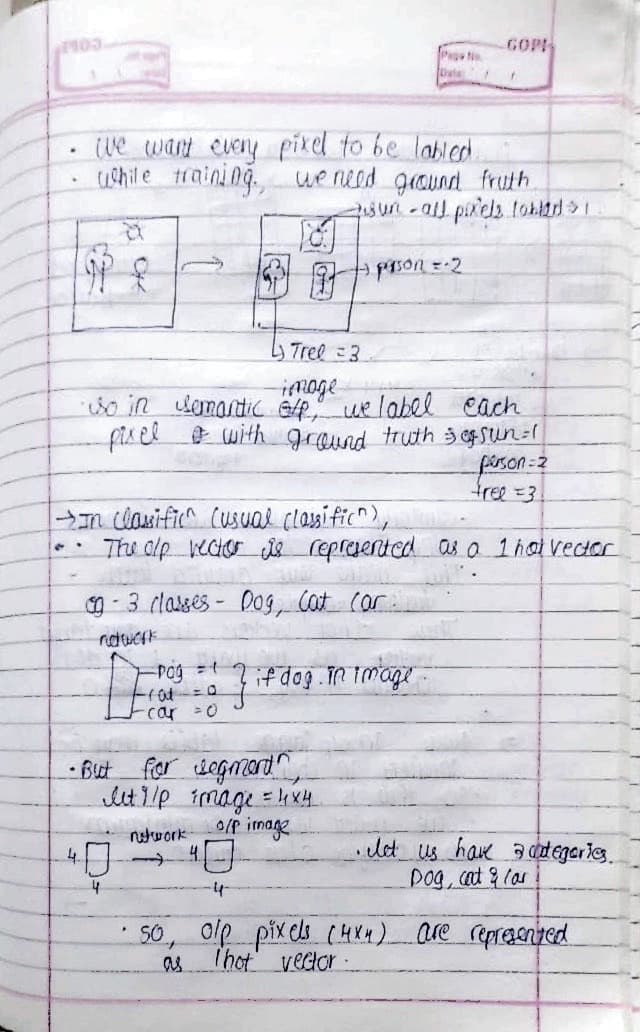 GOPI
Page No.
Date: / /
• We want every pixel to be labled
• While training, we need ground truth
→ sun - all pixels labled → 1
→ person = 2
↳ Tree = 3
image
so in semantic o/p, we label each
pixel with ground truth → eg sun = 1
person = 2
tree = 3
→ In classificⁿ (usual classificⁿ),
• The o/p vector is represented as a 1 hot vector
eg - 3 classes - Dog, Cat Car.
network
Dog = 1
cat = 0
car = 0
} if dog in image.
• But for segmentⁿ,
let i/p image = 4x4
network
o/p image
4
→
4
4
4
• let us have 3 categories
Dog, cat & car
• so, o/p pixels (4x4) are represented
as 1hot vector.